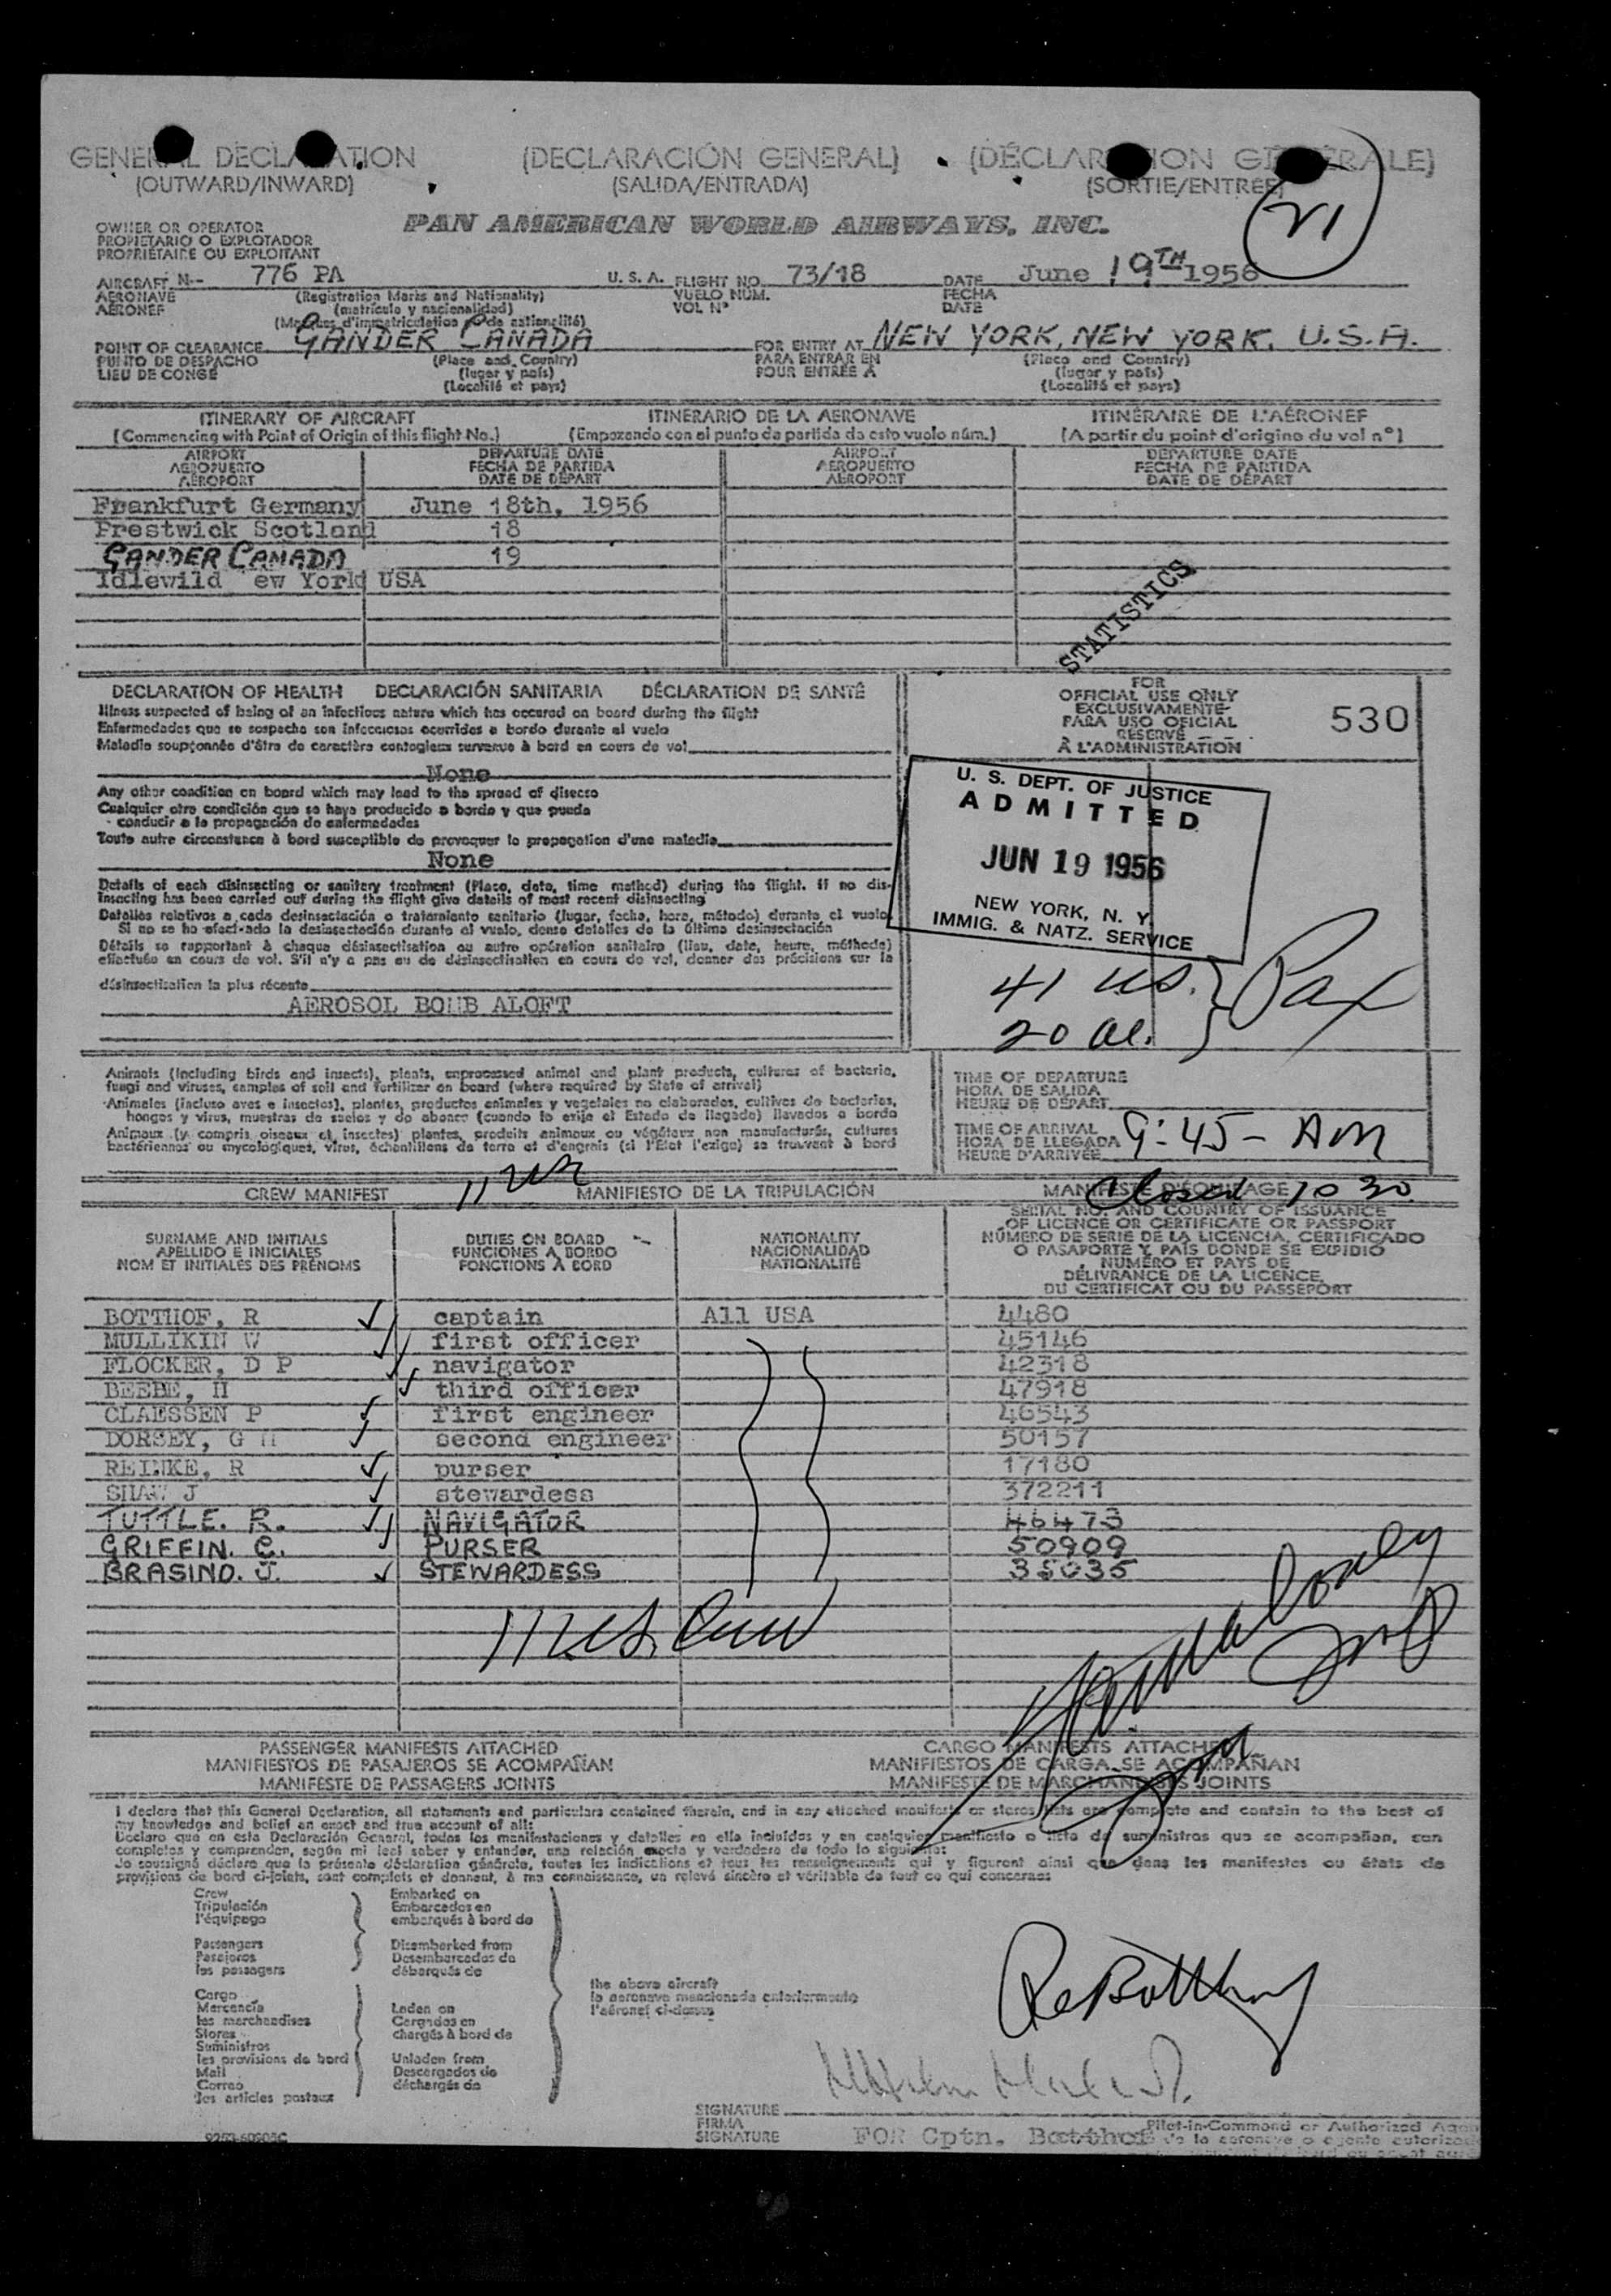 GENERAL DECLARATION (DECLARACIÓN GENERAL) (DÉCLARATION GÉNÉRALE)
(OUTWARD/INWARD) (SALIDA/ENTRADA) (SORTIE/ENTRÉE)
21
OWNER OR OPERATOR PAN AMERICAN WORLD AIRWAYS, INC.
PROPIETARIO O EXPLOTADOR
PROPRIÉTAIRE OU EXPLOITANT
AIRCRAFT N-- 776 PA U. S. A. FLIGHT NO. 73/18 DATE June 19TH 1956
AERONAVE (Registration Marks and Nationality) VUELO NÚM. FECHA
AÉRONEF (matrícula y nacionalidad) VOL Nº DATE
(Marques d'immatriculation et de nationalité)
POINT OF CLEARANCE GANDER CANADA FOR ENTRY AT NEW YORK, NEW YORK, U.S.A.
PUNTO DE DESPACHO (Place and Country) PARA ENTRAR EN (Place and Country)
LIEU DE CONGÉ (lugar y país) POUR ENTRÉE À (lugar y país)
(Localité et pays) (Localité et pays)
ITINERARY OF AIRCRAFT ITINERARIO DE LA AERONAVE ITINÉRAIRE DE L'AÉRONEF
(Commencing with Point of Origin of this flight No.) (Empezando con el punto de partida de esto vuelo núm.) (A partir du point d'origine du vol nº)
AIRPORT DEPARTURE DATE AIRPORT DEPARTURE DATE
AEROPUERTO FECHA DE PARTIDA AEROPUERTO FECHA DE PARTIDA
AÉROPORT DATE DE DÉPART AÉROPORT DATE DE DÉPART
Frankfurt Germany June 18th, 1956
Prestwick Scotland 18
GANDER CANADA 19
Idlewild ew York USA
STATISTICS
DECLARATION OF HEALTH DECLARACIÓN SANITARIA DÉCLARATION DE SANTÉ
Illness suspected of being of an infectious nature which has occured on board during the flight
Enfermedades que se sospecha son infecciosas ocurridas a bordo durante el vuelo
Maladie soupçonnée d'être de caractère contagieux survenue à bord en cours de vol
None
Any other condition on board which may lead to the spread of disease
Cualquier otra condición que se haya producido a bordo y que pueda
conducir a la propagación de enfermedades
Toute autre circonstance à bord susceptible de provoquer la propagation d'une maladie
None
Details of each disinsecting or sanitary treatment (Place, date, time method) during the flight. If no dis-
insecting has been carried out during the flight give details of most recent disinsecting
Detalles relativos a cada desinsectación o tratamiento sanitario (lugar, fecha, hora, método) durante el vuelo.
Si no se ha efectuado la desinsectación durante el vuelo, dense detalles de la última desinsectación
Détails se rapportant à chaque désinsectisation ou autre opération sanitaire (lieu, date, heure, méthode)
effectuée en cours de vol. S'il n'y a pas eu de désinsectisation en cours de vol, donner des précisions sur la
désinsectisation la plus récente
AEROSOL BOMB ALOFT
FOR
OFFICIAL USE ONLY
EXCLUSIVAMENTE
PARA USO OFICIAL
RÉSERVÉ
À L'ADMINISTRATION
530
U. S. DEPT. OF JUSTICE
ADMITTED
JUN 19 1956
NEW YORK, N. Y.
IMMIG. & NATZ. SERVICE
41 US. } Pax
20 Al.
Animals (including birds and insects), plants, unprocessed animal and plant products, cultures of bacteria,
fungi and viruses, samples of soil and fertilizer on board (where required by State of arrival)
Animales (incluso aves e insectos), plantas, productos animales y vegetales no elaborados, cultivos de bacterias,
hongos y virus, muestras de suelos y de abonos (cuando lo exija el Estado de llegada) llevados a bordo
Animaux (y compris oiseaux et insectes) plantes, produits animaux ou végétaux non manufacturés, cultures
bactériennes ou mycologiques, virus, échantillons de terre et d'engrais (si l'Etat l'exige) se trouvant à bord
TIME OF DEPARTURE
HORA DE SALIDA
HEURE DE DÉPART
TIME OF ARRIVAL
HORA DE LLEGADA 9:45 - AM
HEURE D'ARRIVÉE
CREW MANIFEST MANIFIESTO DE LA TRIPULACIÓN MANIFESTE D'ÉQUIPAGE
Closed 10 30
SURNAME AND INITIALS DUTIES ON BOARD NATIONALITY
APELLIDO E INICIALES FUNCIONES A BORDO NACIONALIDAD
NOM ET INITIALES DES PRÉNOMS FONCTIONS À BORD NATIONALITÉ
SERIAL NO. AND COUNTRY OF ISSUANCE
OF LICENCE OR CERTIFICATE OR PASSPORT
NÚMERO DE SERIE DE LA LICENCIA, CERTIFICADO
O PASAPORTE Y PAÍS DONDE SE EXPIDIÓ
NUMÉRO ET PAYS DE
DÉLIVRANCE DE LA LICENCE,
DU CERTIFICAT OU DU PASSEPORT
BOTTHOF, R captain All USA 4480
MULLIKIN W first officer 45146
FLOCKER, D P navigator 42318
BEEBE, H third officer 47918
CLAESSEN P first engineer 46543
DORSEY, G H second engineer 50157
REINKE, R purser 17180
SHAW J stewardess 372211
TUTTLE. R. NAVIGATOR 46473
GRIFFIN. C. PURSER 50909
BRASINO. J. STEWARDESS 35035
11 US. Crew
PASSENGER MANIFESTS ATTACHED CARGO MANIFESTS ATTACHED
MANIFIESTOS DE PASAJEROS SE ACOMPAÑAN MANIFIESTOS DE CARGA SE ACOMPAÑAN
MANIFESTE DE PASSAGERS JOINTS MANIFESTE DE MARCHANDISES JOINTS
I declare that this General Declaration, all statements and particulars contained therein, and in any attached manifests or stores lists are complete and contain to the best of
my knowledge and belief an exact and true account of all:
Declaro que en esta Declaración General, todas las manifestaciones y detalles en ella incluídos y en cualquier manifiesto o lista de suministros que se acompañan, son
completos y comprenden, según mi leal saber y entender, una relación exacta y verdadera de todo lo siguiente:
Je soussigné déclare que la présente déclaration générale, toutes les indications et tous les renseignements qui y figurent ainsi que dans les manifestes ou états de
provisions de bord ci-joints, sont complets et donnent, à ma connaissance, un relevé sincère et véritable de tout ce qui concerne:
Crew Embarked on
Tripulación Embarcados en
l'équipage embarqués à bord de
Passengers Disembarked from
Pasajeros Desembarcados de
les passagers débarqués de
the above aircraft
la aeronave mencionada anteriormente
l'aéronef ci-dessus
Cargo
Mercancía Laden on
les marchandises Cargados en
Stores chargés à bord de
Suministros
les provisions de bord Unladen from
Mail Descargados de
Correo déchargés de
les articles postaux
SIGNATURE
FIRMA Pilot-in-Command or Authorized Agen
SIGNATURE FOR Cptn. Botthof de la aeronave o agente autorizad